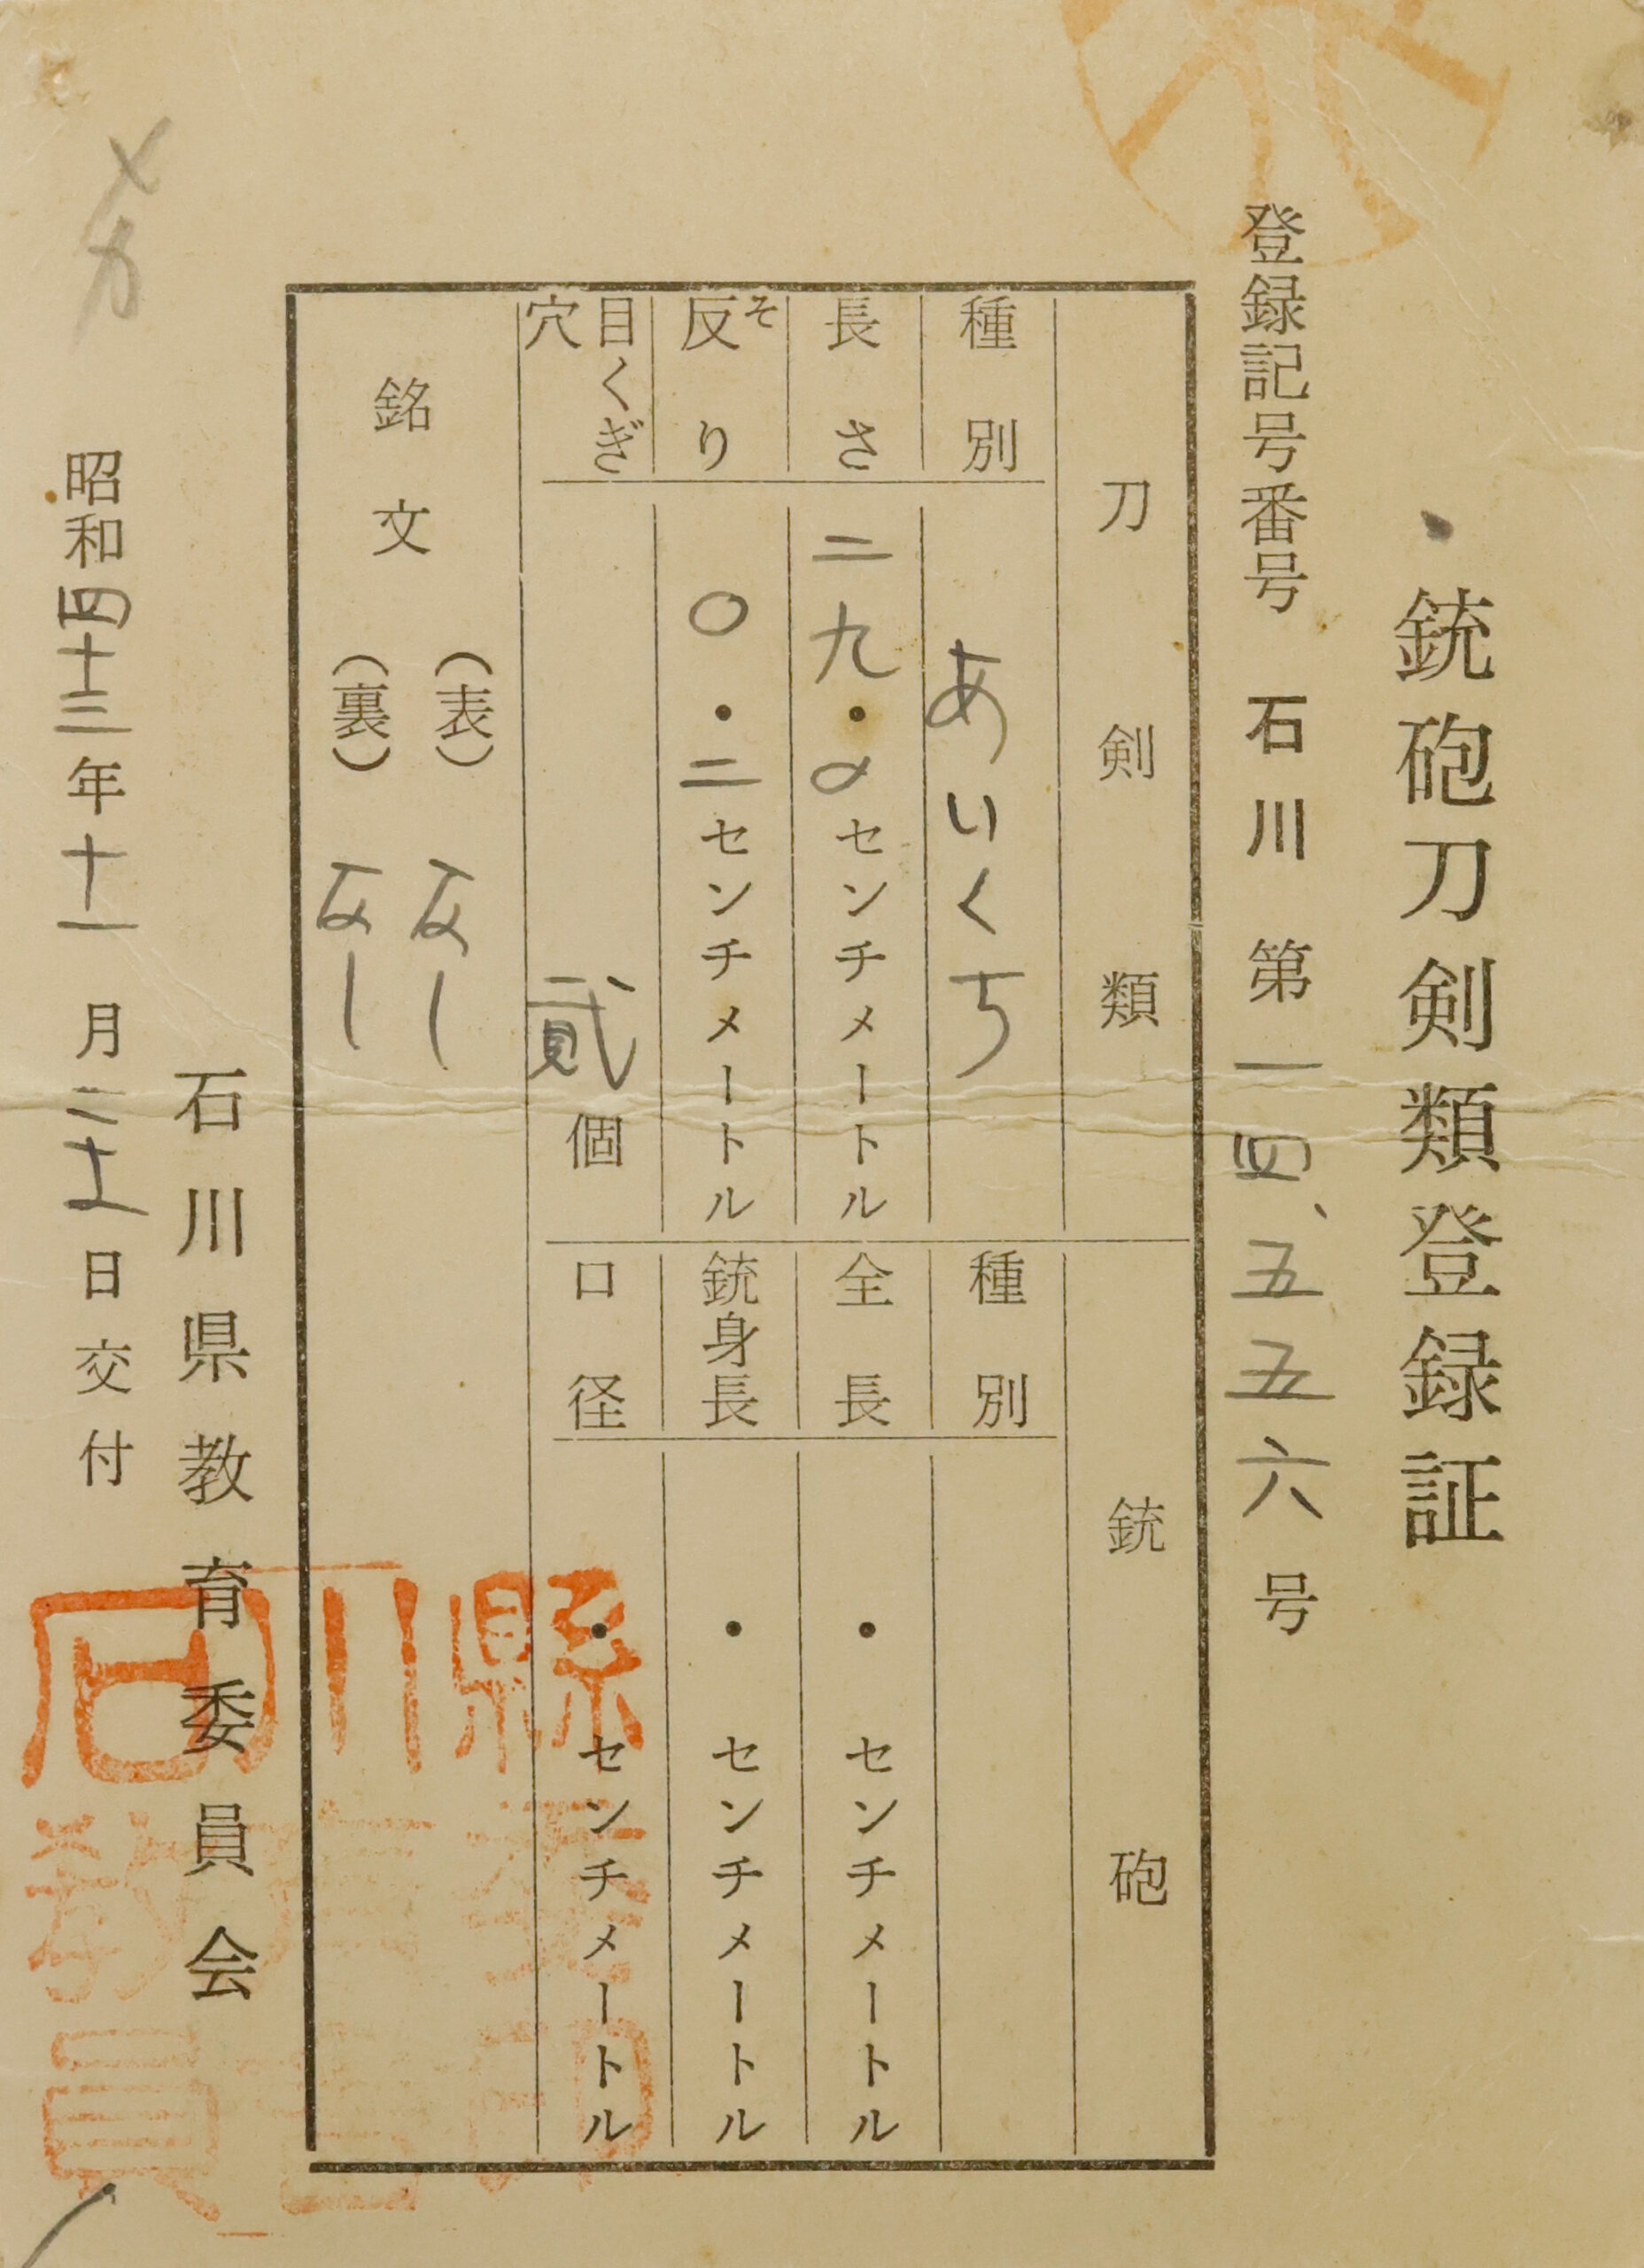 銃砲刀剣類登録証
登録記号番号 石川 第一四、五五六号
刀剣類
種別 あいくち
長さ 二九・〇センチメートル
反り 〇・二センチメートル
そ
目くぎ穴 貳個
銘文
(表) なし
(裏) なし
銃砲
種別
全長 ・ センチメートル
銃身長 ・ センチメートル
口径 ・ センチメートル
石川県教育委員会
昭和四十三年十一月二十一日交付
石川縣
教育委
員会印